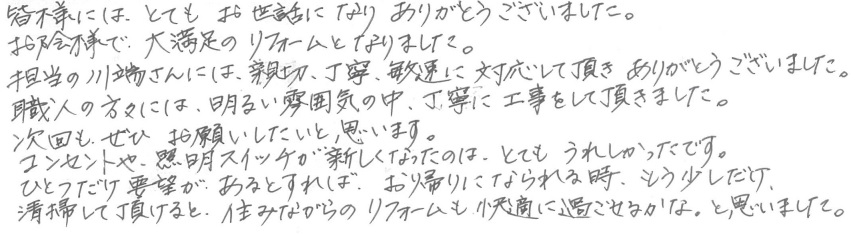 皆様には、とても お世話になり ありがとうございました。
お陰様で、大満足の リフォームと なりました。
担当の川端さんには、親切、丁寧、敏速に 対応して頂き ありがとうございました。
職人の方々には、明るい雰囲気の中、丁寧に 工事をして頂きました。
次回も、ぜひ お願いしたいと、思います。
コンセントや、照明スイッチが新しくなったのは、とても うれしかったです。
ひとつだけ要望が、あるとすれば、お帰りになられる時、もう少しだけ、
清掃して頂けると、住みながらの リフォームも 快適に過ごせるかな。と、思いました。